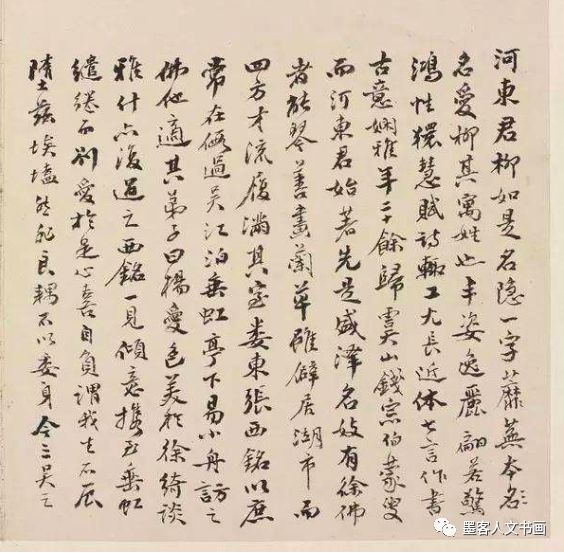 河東君柳如是名隐一字蘼蕪本名
名愛柳其寓姓也丰姿逸麗翩若驚
鴻性獧慧賦詩輒工尤長近体七言作書
古意嫻雅年二十餘歸虞山錢宗伯蒙叟
而河東君始著先是盛澤名妓有徐佛
者能琴善畫蘭草雖僻居湖市而
四方才流履滿其室婁東張西銘以庶
常在假過吳江泊垂虹亭下易小舟訪之
佛他適其弟子曰楊愛色美於徐綺談
雅什亦復過之西銘一見傾意携至垂虹
繾綣而別愛於是心喜自負謂我生不辰
墮茲埃壒然非良耦不以委身今三吳之
墨客人文书画